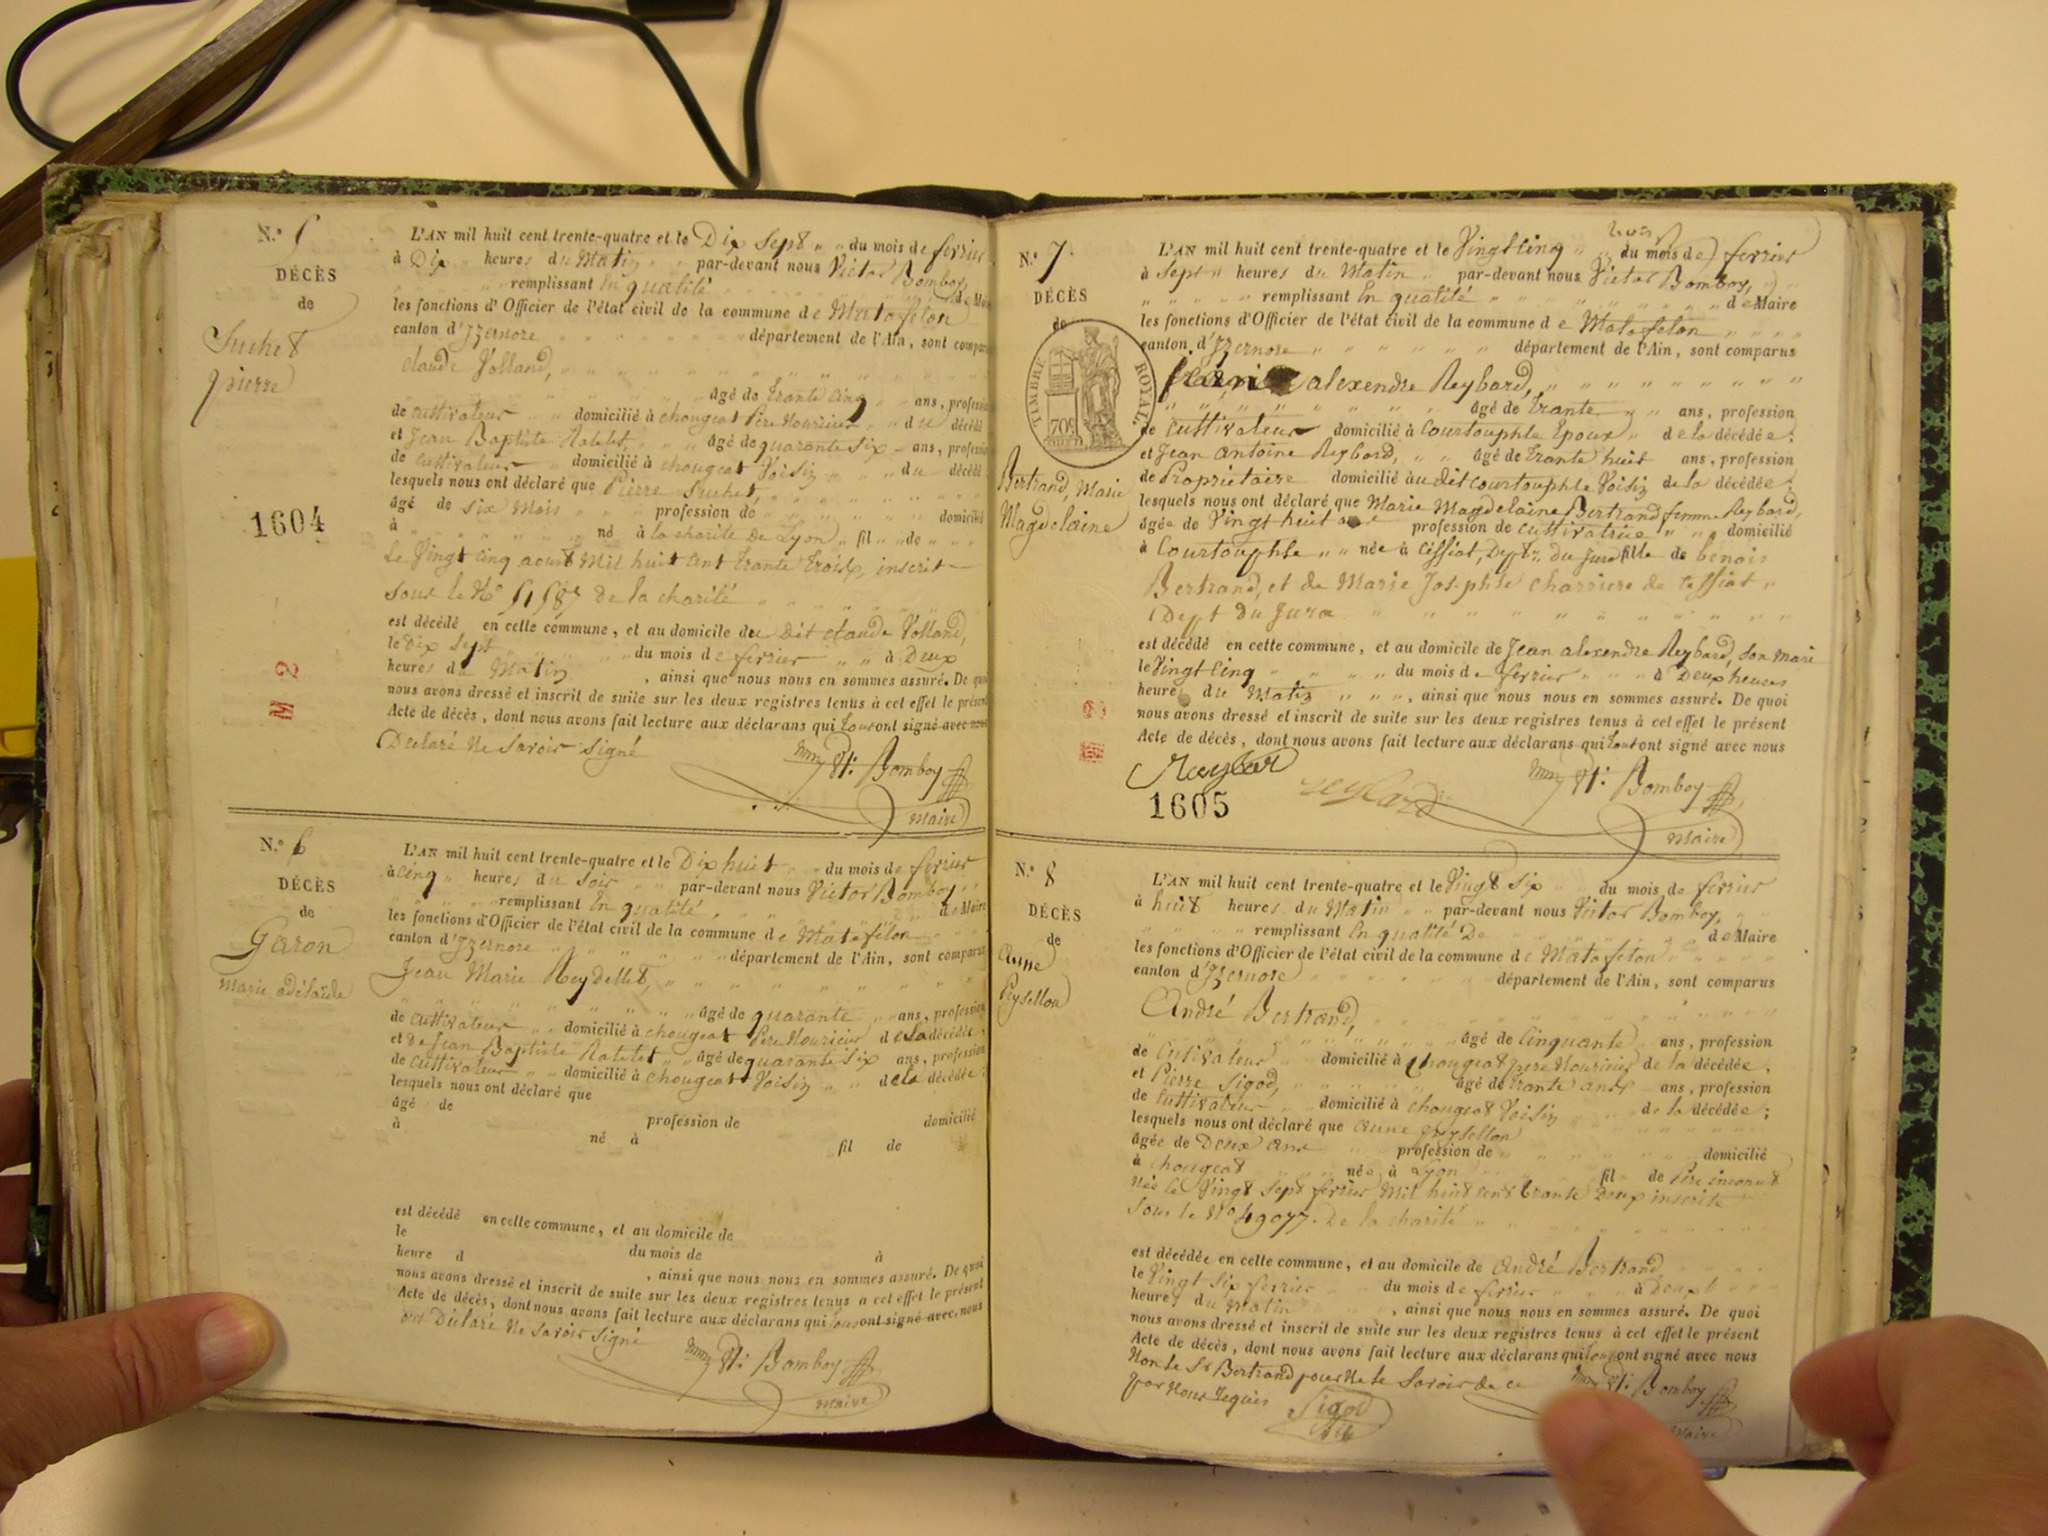 N.º 5
DÉCÈS
de
Suchet
pierre
1604
M 2
L'AN mil huit cent trente-quatre et le Dix Sept du mois de fevrier
à Dix heures du Matin par-devant nous Victor Bomboy,
remplissant En qualité de Maire
les fonctions d'Officier de l'état civil de la commune de Matafelon
canton d'Izernore département de l'Ain, sont comparus
claude Volland,
âgé de trante cinq ans, profession
de cultivateur domicilié à chougeat Pere Nouricier du décédé
et Jean Baptiste Ratelet âgé de quarante six ans, profession
de cultivateur domicilié à chougeat Voisin du décédé
lesquels nous ont déclaré que Pierre Suchet,
âgé de six Mois profession de domicilié
à né à la charité de Lyon fil de
Le Vingt cinq aout Mil huit cent trante trois, inscrit
sous le Nº 51587 de la charité
est décédé en cette commune, et au domicile de dit claude Volland,
le Dix Sept du mois de fevrier à Deux
heures du Matin, ainsi que nous nous en sommes assuré. De quoi
nous avons dressé et inscrit de suite sur les deux registres tenus à cet effet le présent
Acte de décès, dont nous avons fait lecture aux déclarans qui tous ont signé avec nous
Declaré Ne Savoir Signé
Vt. Bomboy
maire
N.º 6
DÉCÈS
de
Garon
marie adélaïde
L'AN mil huit cent trente-quatre et le Dix huit du mois de fevrier
à cinq heures du Soir par-devant nous Victor Bomboy,
remplissant En qualité de Maire
les fonctions d'Officier de l'état civil de la commune de Matafelon
canton d'Izernore département de l'Ain, sont comparus
Jean Marie Reydellet,
âgé de quarante ans, profession
de cultivateur domicilié à chougeat Pere Nouricier de la décédée,
et de Jean Baptiste Ratelet âgé de quarante six ans, profession
de cultivateur domicilié à chougeat Voisin de la décédée;
lesquels nous ont déclaré que
âgé de profession de domicilié
à né à fil de
est décédé en cette commune, et au domicile de
le du mois de à
heure d , ainsi que nous nous en sommes assuré. De quoi
nous avons dressé et inscrit de suite sur les deux registres tenus à cet effet le présent
Acte de décès, dont nous avons fait lecture aux déclarans qui tous ont signé avec nous
ont Déclaré Ne Savoir Signé
Vt. Bomboy
maire
N.º 7.
DÉCÈS
de
TIMBRE ROYAL
70c
Bertrand, Marie
Magdelaine
L'AN mil huit cent trente-quatre et le Vingt cinq du mois de fevrier
à Sept heures du Matin par-devant nous Victor Bomboy,
remplissant En qualité de Maire
les fonctions d'Officier de l'état civil de la commune de Matafelon
canton d'Izernore département de l'Ain, sont comparus
alexendre Reybard,
âgé de trante ans, profession
de cultivateur domicilié à Courtouphle Epoux de la décédée;
et Jean antoine Reybard, âgé de trante huit ans, profession
de Propriétaire domicilié au dit courtouphle Voisin de la décédée;
lesquels nous ont déclaré que Marie Magdelaine Bertrand femme Reybard,
âgée de Vingt huit profession de cultivatrice domicilié
à Courtouphle née à Cessiat, Dept. du Jura fille de benoit
Bertrand, et de Marie Josephte Charriere de Cessiat
Dept du Jura
est décédé en cette commune, et au domicile de Jean alexendre Reybard, Son Mari
le Vingt Cinq du mois de fevrier à Deux heures
heure du Matin, ainsi que nous nous en sommes assuré. De quoi
nous avons dressé et inscrit de suite sur les deux registres tenus à cet effet le présent
Acte de décès, dont nous avons fait lecture aux déclarans qui tout ont signé avec nous
Reybar reybard Vt. Bomboy
1605
maire
N.º 8
DÉCÈS
de
Anne
Peysellon
L'AN mil huit cent trente-quatre et le Vingt Six du mois de fevrier
à huit heures du Matin par-devant nous Victor Bomboy,
remplissant En qualité De de Maire
les fonctions d'Officier de l'état civil de la commune de Matafelon
canton d'Izernore département de l'Ain, sont comparus
André Bertrand,
âgé de Cinquante ans, profession
de Cutivateur domicilié à Chougeat pere Nouricier de la décédée,
et Pierre Sigod, âgé de trante ans, profession
de cultivateur domicilié à chougeat Voisin de la décédée;
lesquels nous ont déclaré que anne peysellon
âgée de Deux ans profession de domicilié
à chougeat née à Lyon fil de Pere inconnut
Née le Vingt Sept fevrier Mil huit cent trante Deux inscrite
Sous le Nº 49077. De la charité
est décédée en cette commune, et au domicile de André Bertrand
le Vingt six fevrier du mois de fevrier à Deux
heure du Matin, ainsi que nous nous en sommes assuré. De quoi
nous avons dressé et inscrit de suite sur les deux registres tenus à cet effet le présent
Acte de décès, dont nous avons fait lecture aux déclarans qui ont signé avec nous
Non le Sr Bertrand pour Ne le Savoir de ce
par Nous requis
Sigod
Vt. Bomboy
maire